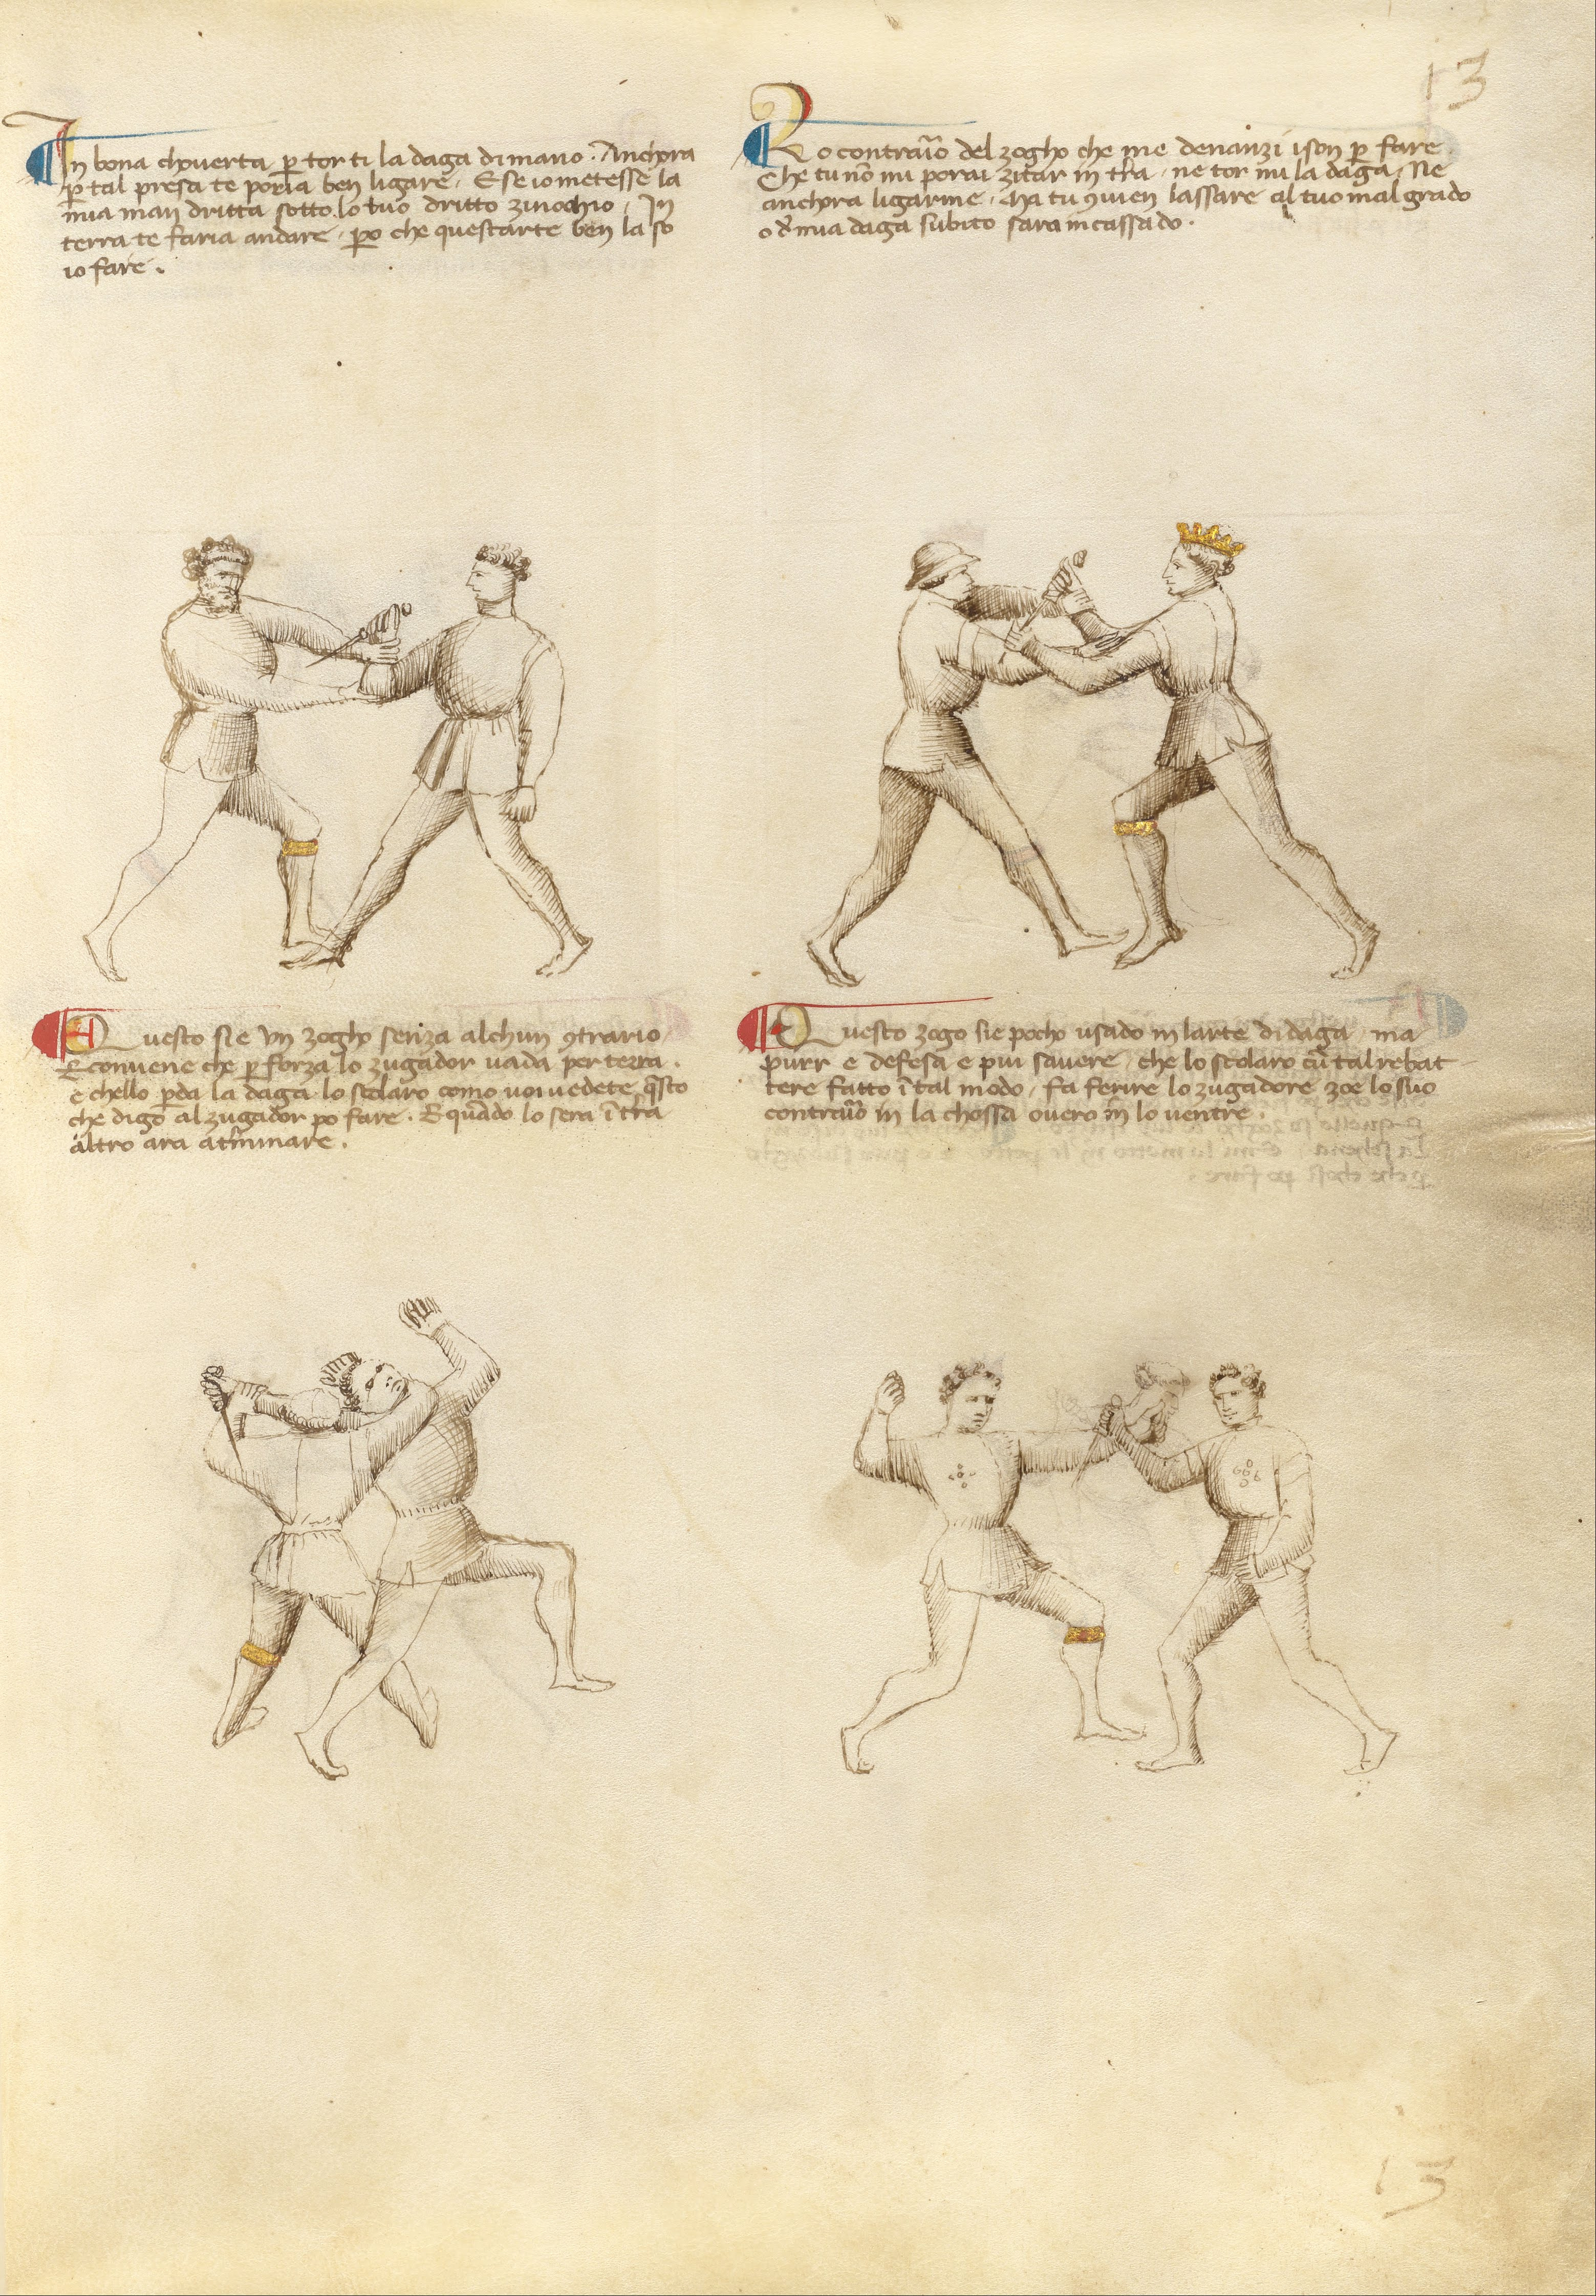 13
In bona choverta per tor ti la daga di mano. Anchora
p̲ tal presa te poria ben ligare. E se io metesse la
mia man dritta sotto lo tuo dritto zinochio, In
terra te faria andare, p̲o che questarte ben la so
io fare.
Lo contrario del zogho che me denanzi ison p̲ fare
Che tu nō mi porai zitar in t̄ra, ne tor mi la daga, Ne
anchora ligarme, Ma tu ꝯvien lassare al tuo mal grado
o d̄ mia daga subito sara incassado.
Questo sie un zogho senza alchun ꝯtrario
E convene che p̲ forza lo zugador vada per terra.
e chello p̲da la daga lo scolaro como voi vedete q̄sto
che digo al zugador po fare. E quādo lo sera ī t̄ra
altro ara a t̄minare.
Questo zogo sie pocho usado in larte di daga, ma
purr e defesa e piu savere, che lo scolaro cū tal rebat
tere fatto ī tal modo, fa ferire lo zugadore zoe lo suo
contrario in la chossa overo in lo ventre.
13